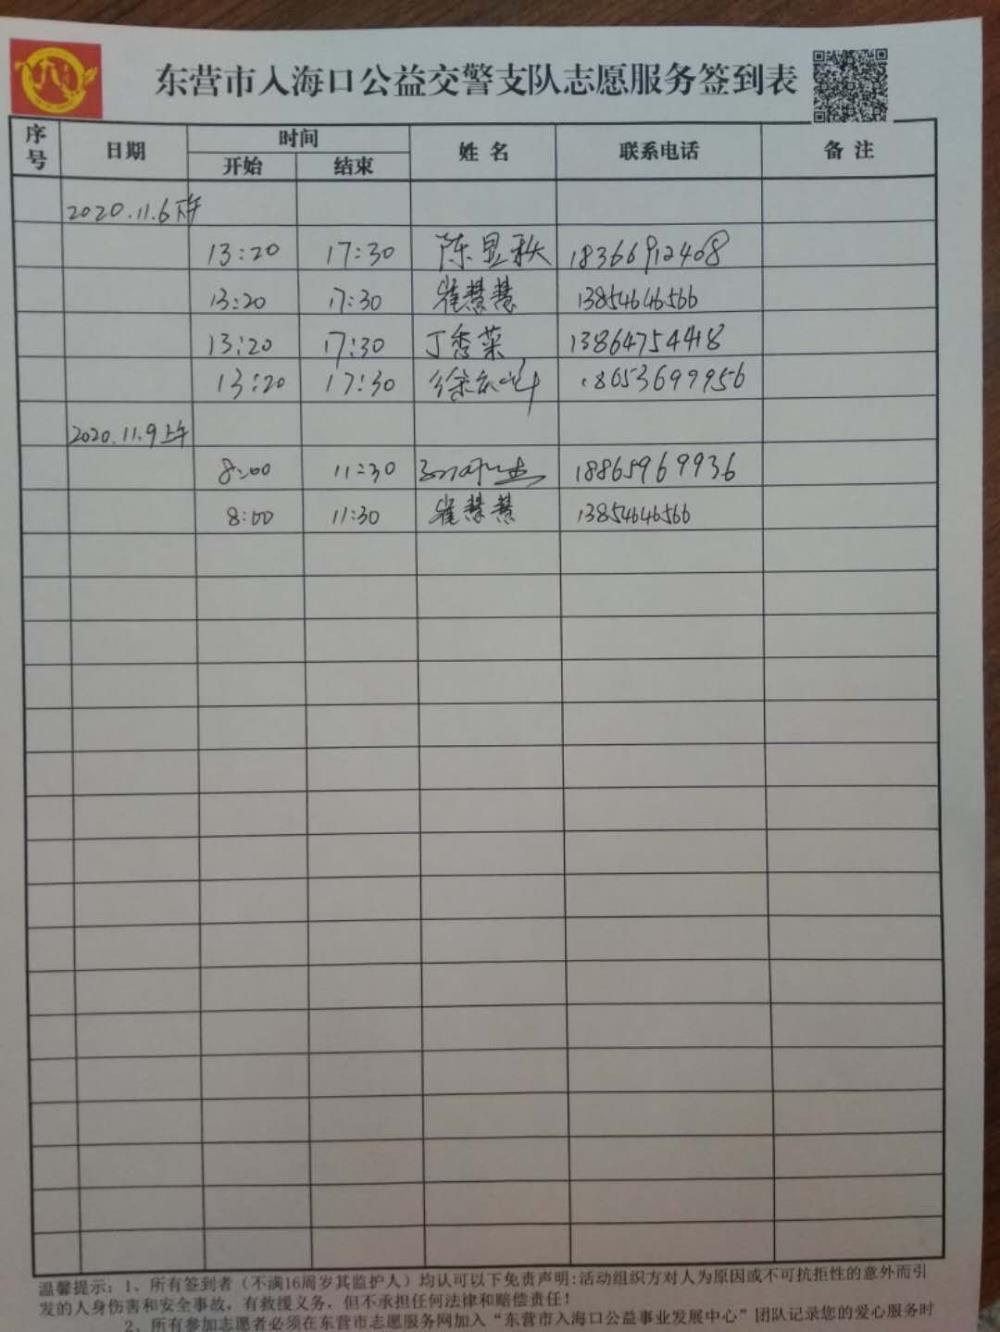 东营市入海口公益交警支队志愿服务签到表
序号 日期 时间 姓名 联系电话 备注
开始 结束
2020.11.6下午
13:20 17:30 陈显秋 18366912408
13:20 17:30 崔慧慧 13854646566
13:20 17:30 丁秀菜 13864754418
13:20 17:30 徐 18653699956
2020.11.9上午
8:00 11:30 18865969936
8:00 11:30 崔慧慧 13854646566
温馨提示：1、所有签到者（不满16周岁其监护人）均认可以下免责声明:活动组织方对人为原因或不可抗拒性的意外而引
发的人身伤害和安全事故，有救援义务，但不承担任何法律和赔偿责任！
2、所有参加志愿者必须在东营市志愿服务网加入“东营市入海口公益事业发展中心”团队记录您的爱心服务时